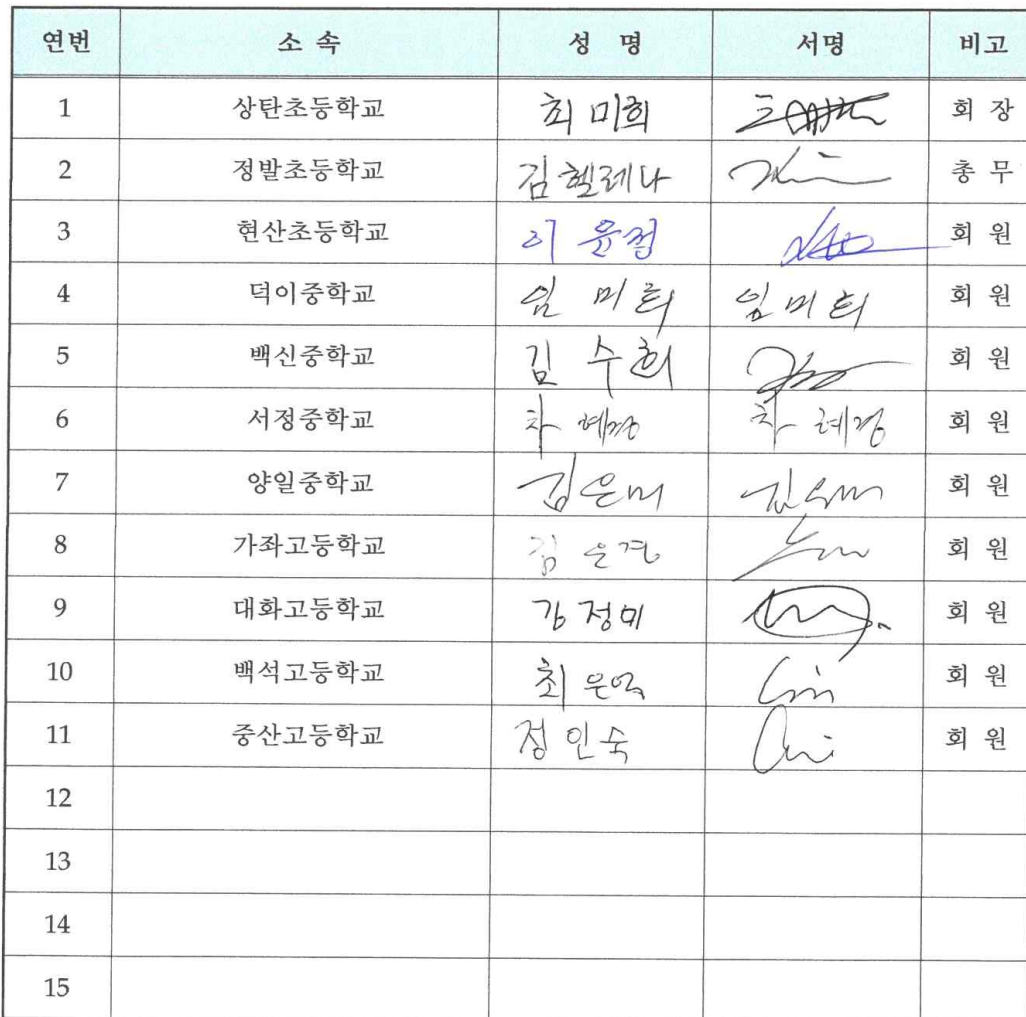 연번 소 속 성 명 서명 비고
1 상탄초등학교 최미희 회 장
2 정발초등학교 김헬레나 총 무
3 현산초등학교 이윤정 회 원
4 덕이중학교 임미희 임미희 회 원
5 백신중학교 김수희 회 원
6 서정중학교 차혜정 차혜정 회 원
7 양일중학교 김은미 회 원
8 가좌고등학교 김은경 회 원
9 대화고등학교 강정미 회 원
10 백석고등학교 최은억 회 원
11 중산고등학교 정인숙 회 원
12
13
14
15